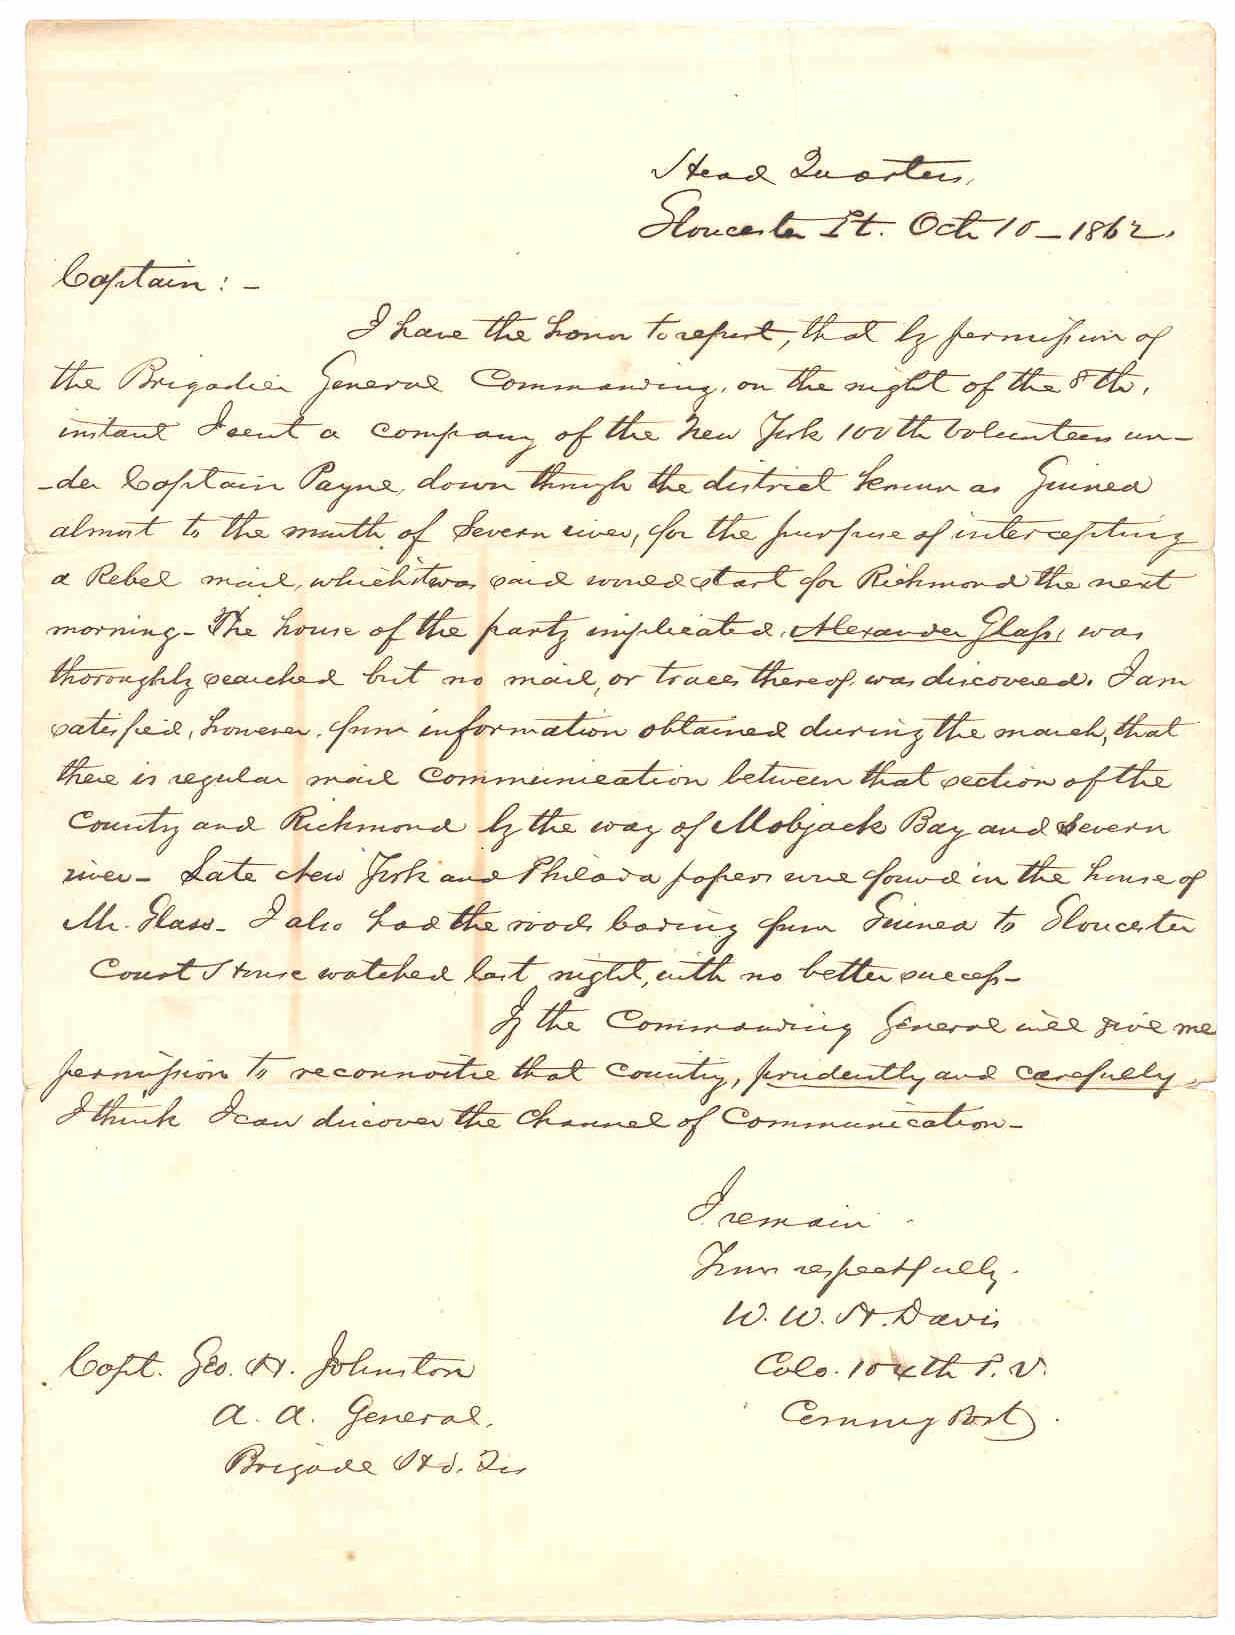 Head Quarters,
Gloucester Pt. Oct 10 – 1862.
Captain : –
I have the honor to report, that by permission of
the Brigadier General Commanding, on the night of the 8th,
instant I sent a company of the New York 100th Volunteers un–
–der Captain Payne, down through the district known as Guinea
almost to the mouth of Severn river, for the purpose of intercepting
a Rebel mail, which it was said would start for Richmond the next
morning – The house of the party implicated, Alexander Glass, was
thoroughly searched but no mail, or traces thereof was discovered. I am
satisfied, however, from information obtained during the march, that
there is regular mail communication between that section of the
County and Richmond by the way of Mobjack Bay and Severn
river – Late New York and Philada papers were found in the house of
Mr. Glass – I also had the roads leading from Guinea to Gloucester
Court House watched last night, with no better success –
If the Commanding General will give me
permission to reconnoitre that county, prudently and carefully,
I think I can discover the channel of communication –
I remain
Your respectfully.
W. W. H. Davis
Colo. 104th P. V.
Comming Post
Capt. Geo. H. Johnston
A. A. General.
Brigade Hd. Qrs